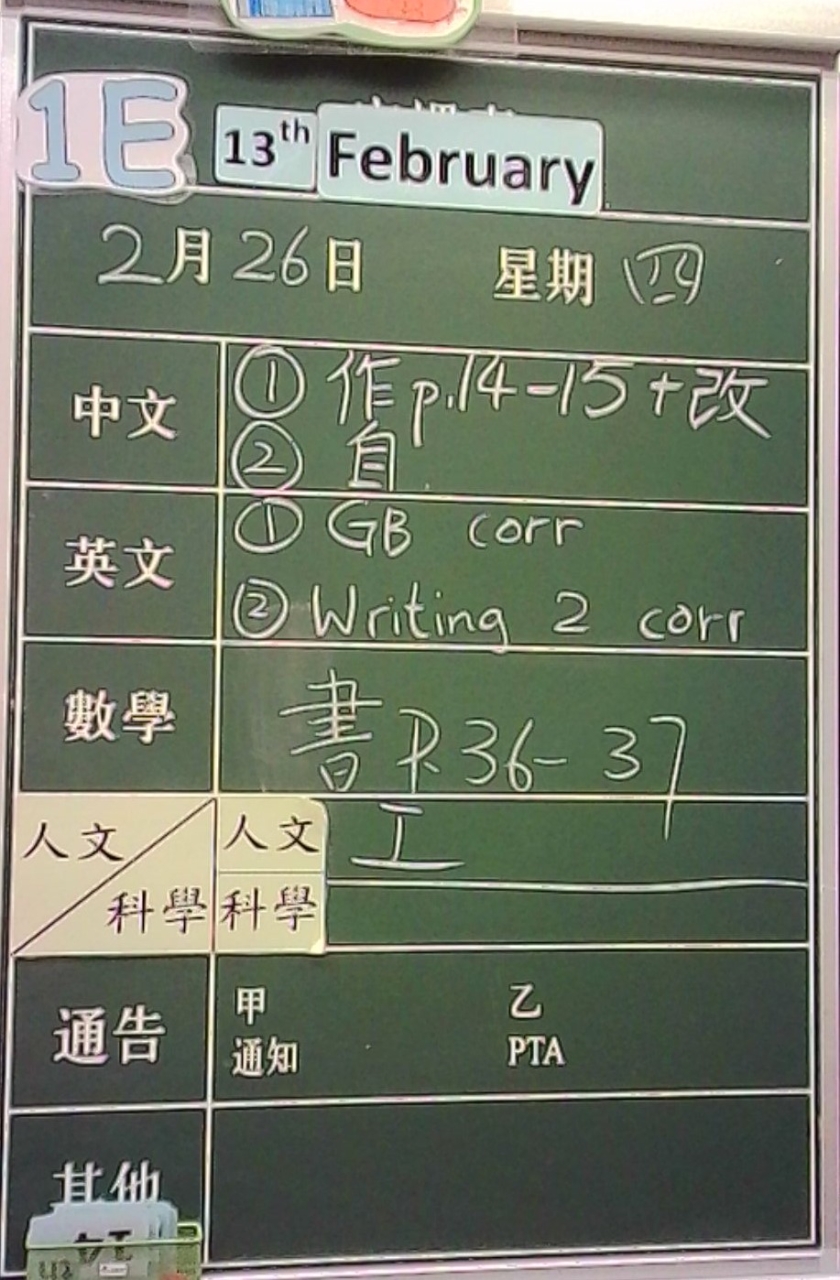 1E 13th February
2月26日 星期 四
中文 ① 作p.14-15+改
② 自
英文 ① GB corr
② Writing 2 corr
數學 書 P.36-37
人文 人文 工
科學 科學
通告 甲 乙
通知 PTA
其他